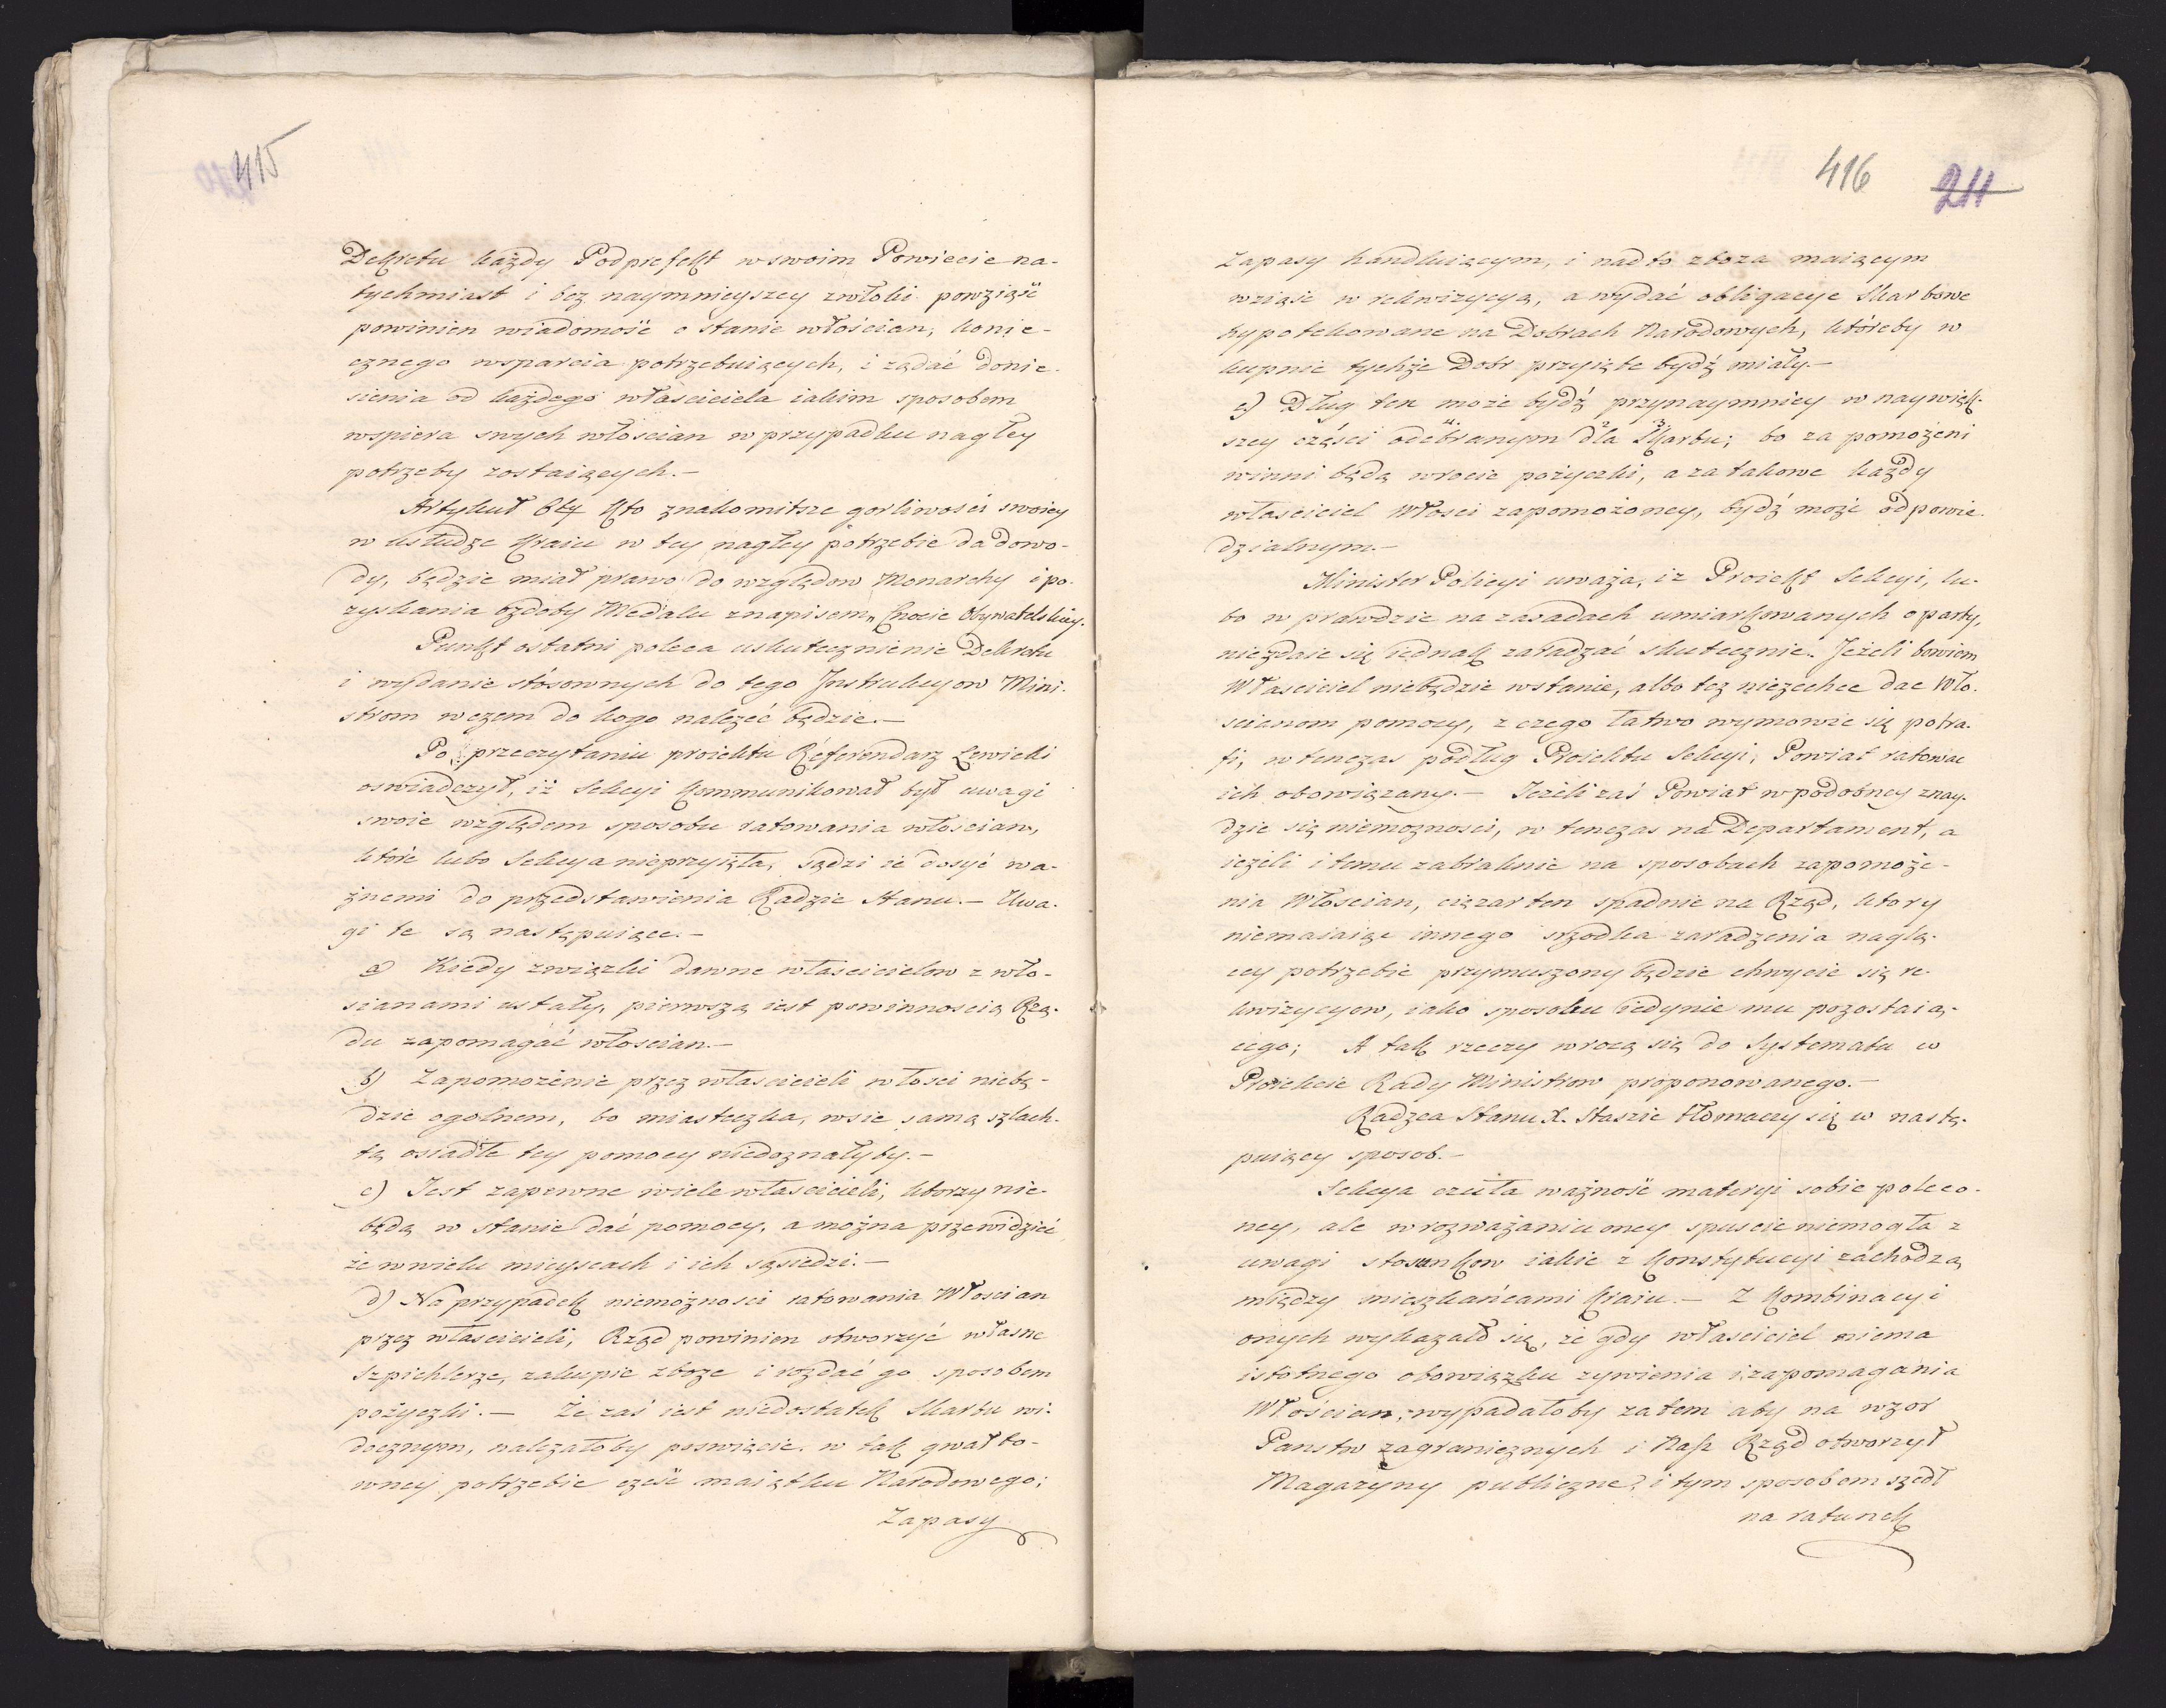 415
Dekretu każdy Podprefekt w swoim Powiecie na-
tychmiast i bez naymnieyszey zwłoki powziąść
powinien wiadomość o stanie włościan, konie-
cznego wsparcia potrzebuiących, i żądać donie-
sienia od każdego właściciela iakim sposobem
wspiera swych włościan w przypadku nagłey
potrzeby zostaiących.-
Artykuł 6ty Kto znakomitsze gorliwości swoiey
w usłudze Kraiu w tey nagłey potrzebie da dowo-
dy, będzie miał prawo do względow Monarchy i po-
zyskania ozdoby Medalu z napisem „ Cnocie Obywatelskiey.
Punkt ostatni poleca uskutecznienie Dekretu
i wydanie stósownych do tego Jnstrukcyow Mini-
strom w czem do kogo należeć będzie.-
Po przeczytaniu proiektu Referendarz Lewicki
oswiadczył, iż Sekcyi Kommunikował był uwagi
swoie względem sposobu ratowania włościan,
które lubo Sekcya nieprzyięła, sądzi ie dosyć wa-
żnemi do przedstawienia Radzie Stanu.- Uwa-
gi te są następuiące.-
a) Kiedy związki dawne właścicielow z wło-
scianami ustały, pierwszą iest powinnoscią Rzą-
du zapomagáć włoscian.-
b) Zapomożenie przez właścicieli włosci niebę-
dzie ogolnem, bo miasteczka, wsie samą szlach-
tą osiadłe tey pomocy niedoznałyby.-
c) Jest zapewne wiele właścicieli, ktorzy nie-
będą w stanie dać pomocy, a można przewidzieć
że w wielu mieyscach i ich sąsiedzi.-
d) Na przypadek niemożnosci ratowania Włoscian
przez właścicieli, Rząd powinien otworzyć własne
Szpichlerze, zakupic zboże i rozdać go sposobem
pożyczki.- Że zaś iest niedostatek Skarbu wi-
docznym, należałoby poswięcic w tak gwałto-
wney potrzebie cześć maiątku Narodowego;
Zapasy
416
211
Zapasy handluiącym, i nadto zboża maiącym
wziąsc w rekwizycyą, a wydać obligacye Skarbowe
hypotekowane na Dobrach Narodowych, któreby w
kupnie tychże Dobr przyięte bydź miały.-
e) Dług ten może bydź przynaymniey w naywięk-
szey części odebranym dla Skarbu; bo za pomożeni
winni będą wrocic pożyczki, a za takowe każdy
właściciel Włosci zapomożoney, bydź może odpowie-
dzialnym.-
Minister Policyi uważa, iż Proiekt Sekcyi, lu-
bo w prawdzie na zasadach umiarkowanych oparty,
niezdaie się iednak zaradzać skutecznie. Jeżeli bowiem
Właściciel niebędzie wstanie, albo też niezechce dac Wło-
scianom pomocy, z czego łatwo wymowic się potra-
fi, w tenczas podług Proiektu Sekcyi, Powiat ratowac
ich obowiązany.- Jeżeli zaś Powiat w podobney znay-
dzie się niemożnosci, w tenczas na Departament, a
ieżeli i temu zabraknie na sposobach zapomoże-
nia Włoscian, ciężar ten spadnie na Rząd, ktory
niemaiaiąc innego srzodka zaradzenia naglą-
cey potrzebie przymuszony będzie chwycic się re-
kwizycyow, iako sposobu iedynie mu pozostaią-
cego; A tak rzeczy wrocą się do Systematu w
Proiekcie Rady Ministrow proponowanego.-
Radzca Stanu X. Staszic tłomaczy się w nastę-
puiący sposob.-
Sekcya czuła ważność materyi sobie poleco-
ney, ale w rozważaniu oney spuscic niemogła z
uwagi stosunkow iakie z Konstytucyi zachodzą
między mieszkańcami Kraiu.- Z Kombinacyi
onych wykazało się, że gdy właściciel niema
istotnego obowiązku żywienia i zapomagania
Włościan, wypadałoby zatem aby na wzor
Panstw zagranicznych i Nasz Rząd otworzył
Magazyny publiczne, i tym sposobem szedł
na ratunek